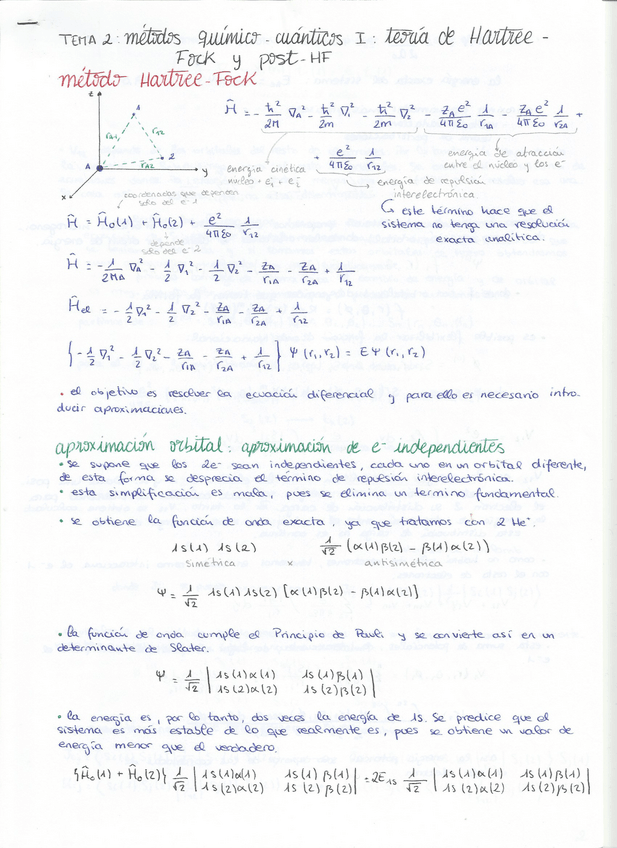 TEMA 2: métodos químico-cuánticos I: teoría de Hartree-
Fock y post-HF
método Hartree-Fock
z
1
r12
rA1
A
rA2
2
y
x
Ĥ = -ħ²/2M ∇A² - ħ²/2m ∇1² - ħ²/2m ∇2² - ZA e²/4πε0 1/r1A - ZA e²/4πε0 1/r2A +
+ e²/4πε0 1/r12
energía cinética
núcleo + e1 + e2
energía de atracción
entre el núcleo y los e-
energía de repulsión
interelectrónica.
↳ este término hace que el
sistema no tenga una resolución
exacta analítica.
coordenadas que dependen
solo del e-1
Ĥ = Ĥ0(1) + Ĥ0(2) + e²/4πε0 1/r12
depende
solo del e-2
Ĥ = -1/2MA ∇A² - 1/2 ∇1² - 1/2 ∇2² - ZA/r1A - ZA/r2A + 1/r12
Ĥel = -1/2 ∇1² - 1/2 ∇2² - ZA/r1A - ZA/r2A + 1/r12
{-1/2 ∇1² - 1/2 ∇2² - ZA/r1A - ZA/r2A + 1/r12} Ψ(r1,r2) = EΨ(r1,r2)
• el objetivo es resolver la ecuación diferencial y para ello es necesario intro-
ducir aproximaciones.
aproximación orbital: aproximación de e- independientes
• se supone que los 2e- sean independientes, cada uno en un orbital diferente,
de esta forma se desprecia el termino de repulsión interelectrónica.
• esta simplificación es mala, pues se elimina un termino fundamental.
• se obtiene la función de onda exacta, ya que tratamos con 2 He+.
1s(1) 1s(2) 1/√2 (α(1)β(2) - β(1)α(2))
simétrica x antisimétrica
Ψ = 1/√2 1s(1)1s(2) [α(1)β(2) - β(1)α(2)]
• la función de onda cumple el Principio de Pauli y se convierte así en un
determinante de Slater.
Ψ = 1/√2 | 1s(1)α(1) 1s(1)β(1) |
| 1s(2)α(2) 1s(2)β(2) |
• la energía es, por lo tanto, dos veces la energía de 1s. Se predice que el
sistema es más estable de lo que realmente es, pues se obtiene un valor de
energía menor que el verdadero.
{Ĥ0(1) + Ĥ0(2)} 1/√2 | 1s(1)α(1) 1s(1)β(1) | = 2E1s 1/√2 | 1s(1)α(1) 1s(1)β(1) |
| 1s(2)α(2) 1s(2)β(2) | | 1s(2)α(2) 1s(2)β(2) |